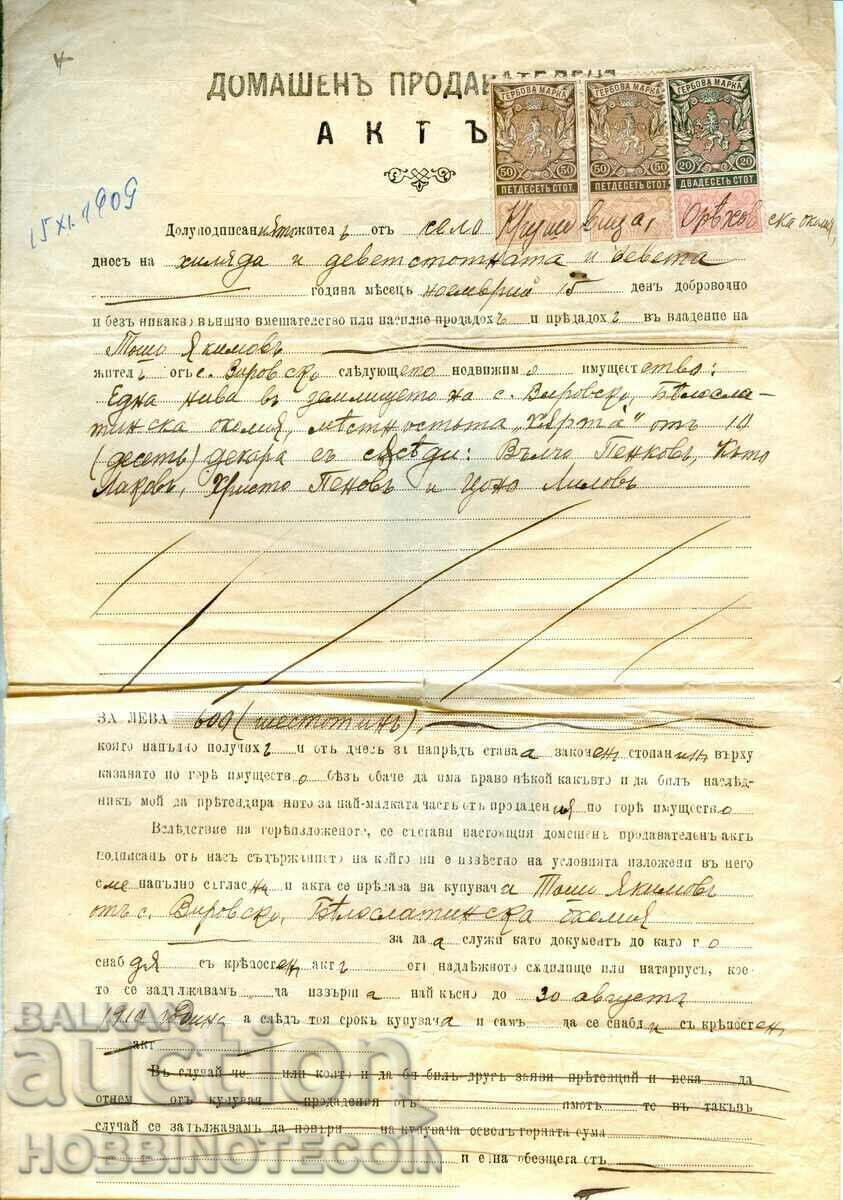 ДОМАШЕНЪ ПРОДАВАТЕЛЕНЪ
АКТЪ
ГЕРБОВА МАРКА
50 50
ПЕТДЕСЕТЬ СТОТ.
ГЕРБОВА МАРКА
50 50
ПЕТДЕСЕТЬ СТОТ.
ГЕРБОВА МАРКА
20 20
ДВАДЕСЕТЬ СТОТ.
15 XI 1909
Долуподписаниятъ жителъ отъ село Крушовица, Орѣховска околия,
днесъ на хиляда и деветстотната и девета
година мѣсецъ ноемврий 15 день доброволно
и безъ никакво външно вмешателство или насилие продадохъ и прѣдадохъ въ владение на
Тошо Якимовъ
жителъ отъ с. Вировско следующето недвижимо имущество:
Една нива въ землището на с. Вировско, Бѣлосла-
тинска околия, мѣстностьта „Кърта" отъ 10
(десеть) декара съ съсѣди: Вълчо Пенковъ, Къто
Лаковъ, Христо Пеновъ и Цоно Лиловъ
ЗА ЛЕВА 600 (шестотинъ),
която напълно получихъ и отъ днесъ за напрѣдъ става законен стопанинъ върху
казанато по горѣ имущество безъ обаче да има право нѣкой какъвто и да билъ наслѣд-
никъ мой да прѣтендира нито за най-малката часть отъ продадения по горѣ имущество
Вследствие на горѣизложеното, се състави настоящия домашен продавателен актъ
подписан отъ насъ съдържанието на който ни е извѣстно на условията изложени въ него
сме напълно съгласни и акта се прѣдава на купувача Тошо Якимовъ
отъ с. Вировско, Бѣлослатинска околия
за да служи като документъ до като го
снабдя съ крѣпостен актъ отъ надлѣжното съдилище или нотариусъ, кое-
то се задължавамъ да извърша най късно до 30 августъ
1910 година а слѣдъ тоя срокъ купувача и самъ да се снабди съ крѣпостен
акт
Въ случай че или който и да би билъ другъ заяви прѣтенций и иска да
отнеме отъ купувач продадения отъ имотъ то въ такъвъ
случай се задължавамъ да повърн на купувача освенъ горната сума
и една обезщета отъ
BALKAN
auction
HOBBINOTECOIN